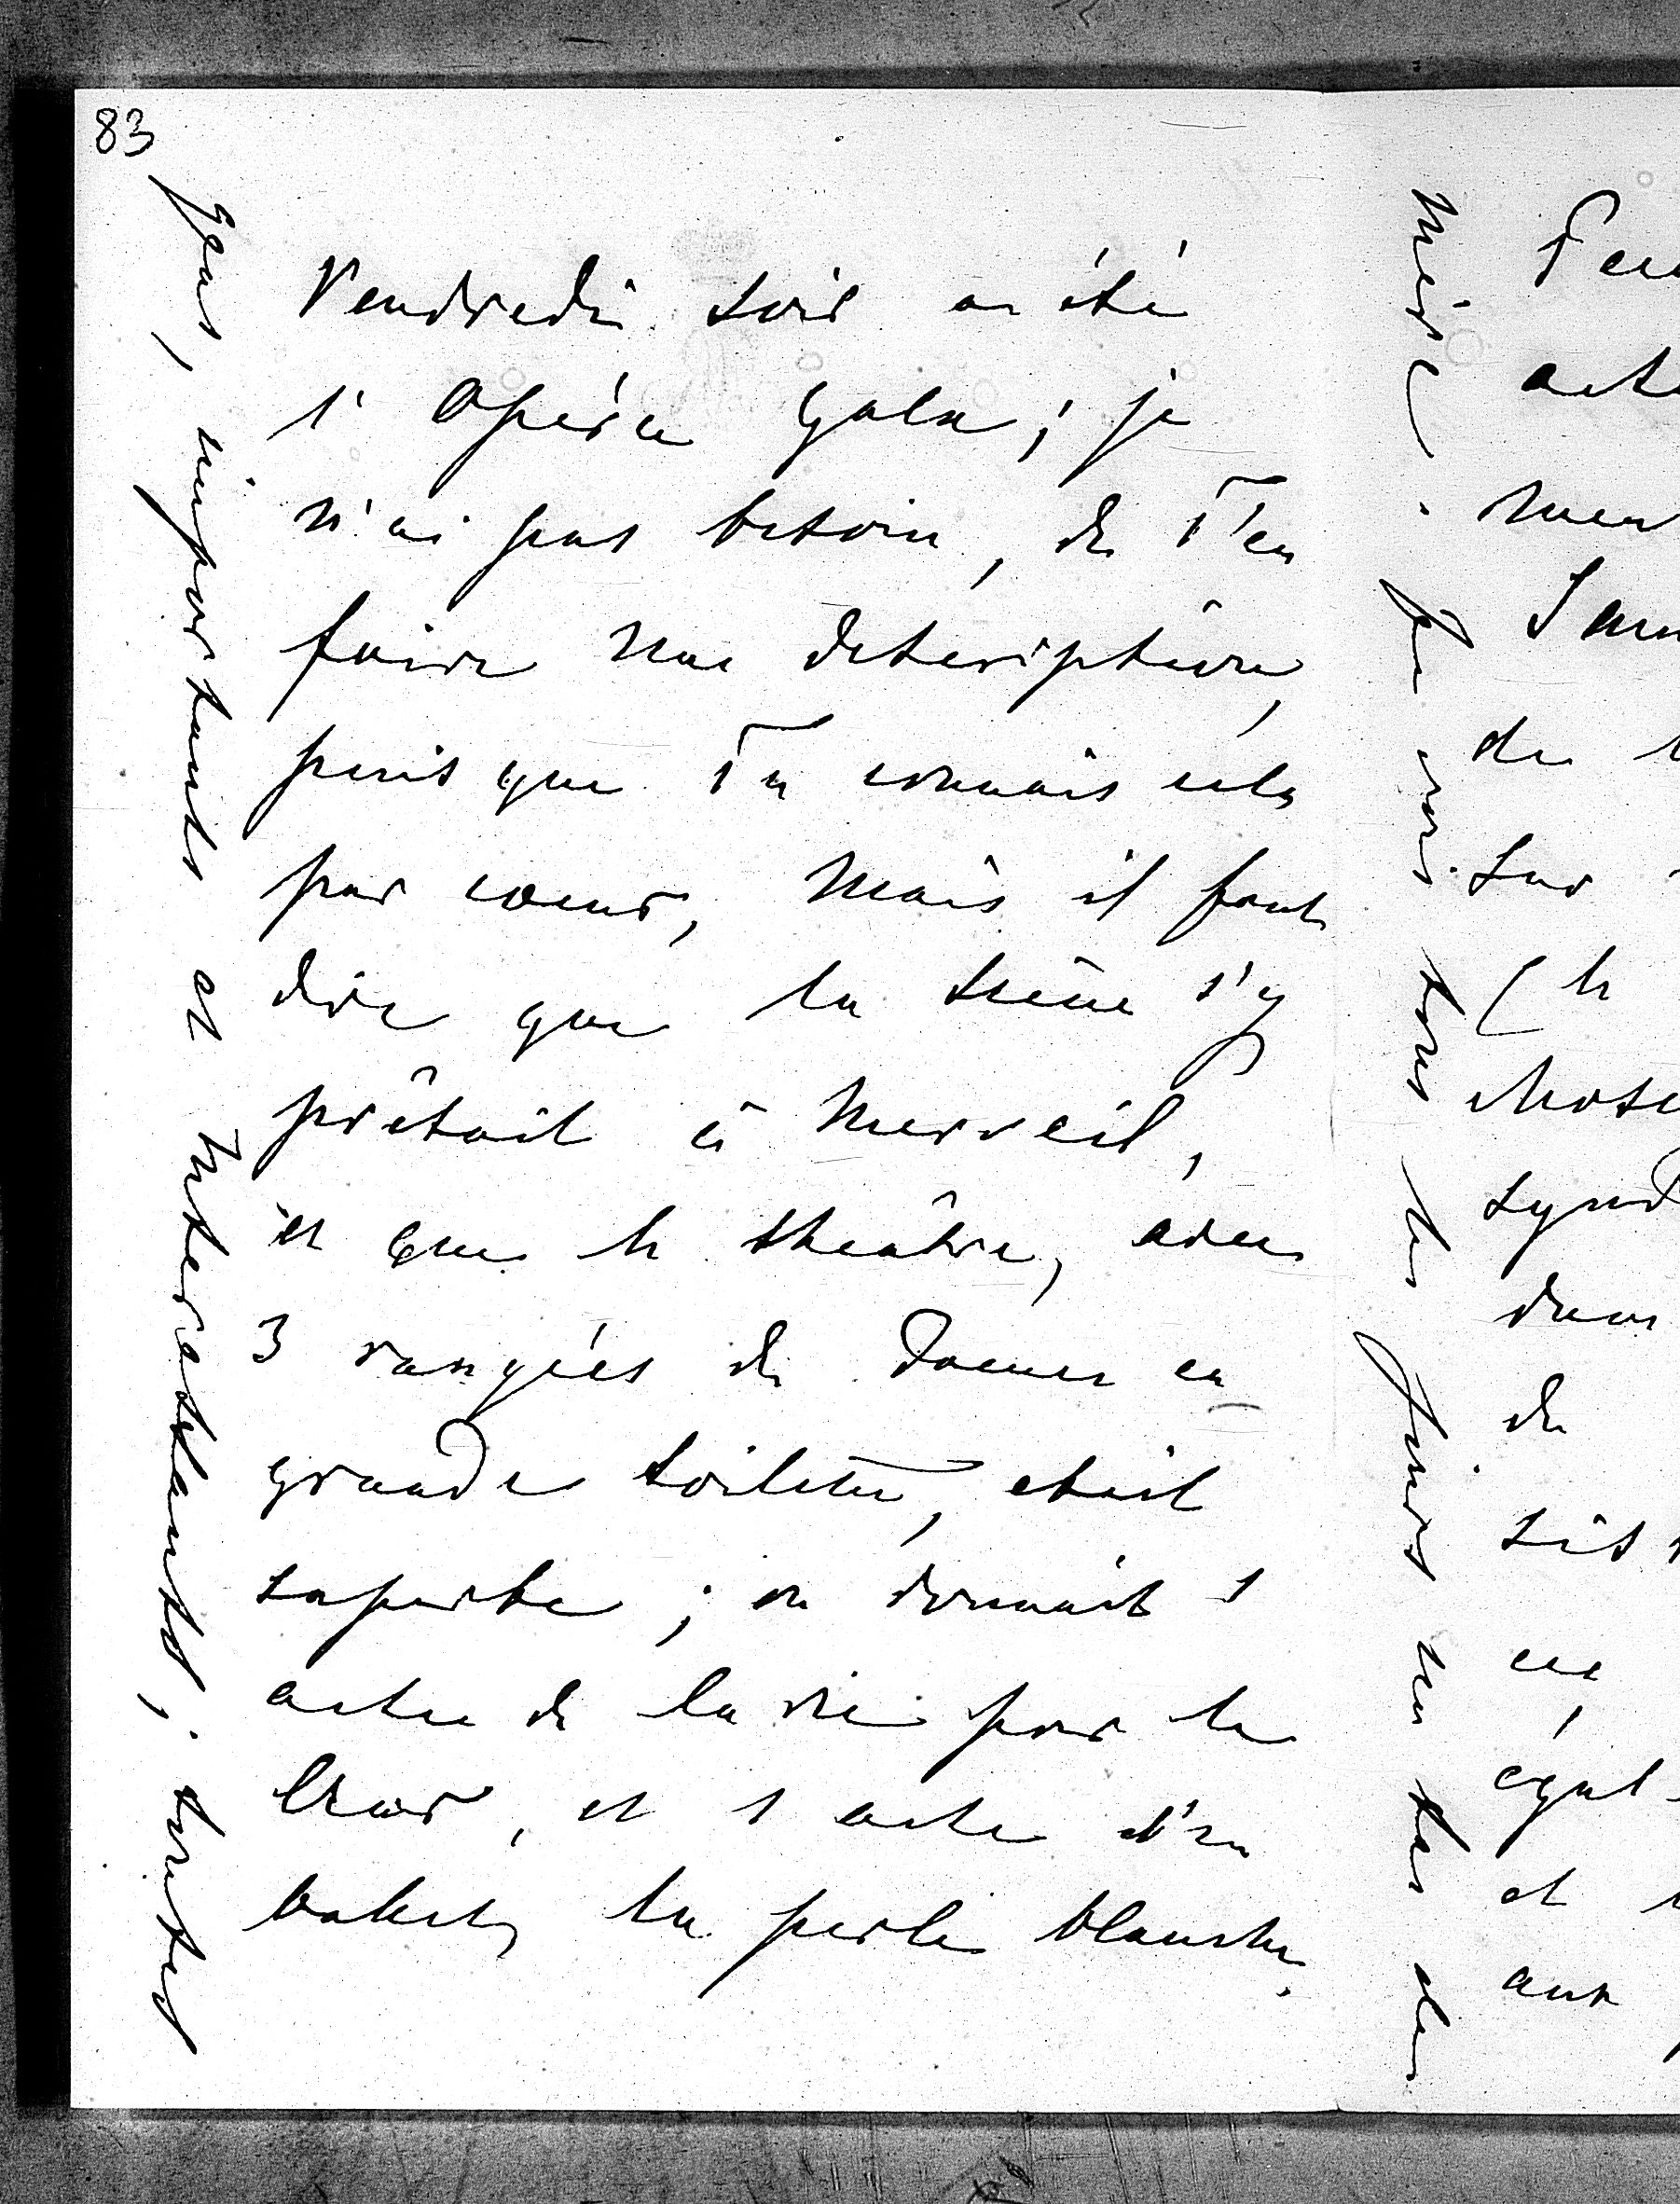 83
Vendredi soir a été
l'Opéra Gala; je
n'ai pas besoin, de T'en
faire une description,
puis que Tu connais cela
par coeur, mais il faut
dire que la scène s'y
prêtait à merveil,
et que le théâtre, avec
3 rangées de Dames en
grande toilette, etait
superbe; on donnait 1
acte de la vie pour le
Czar, et 1 acte d'un
ballet, la perle blanche.
gens, importants et interessants; toutes
mêr
je vois tous les jours un tas de
acte
de
sur
(le
chose
synd
de
et
aux